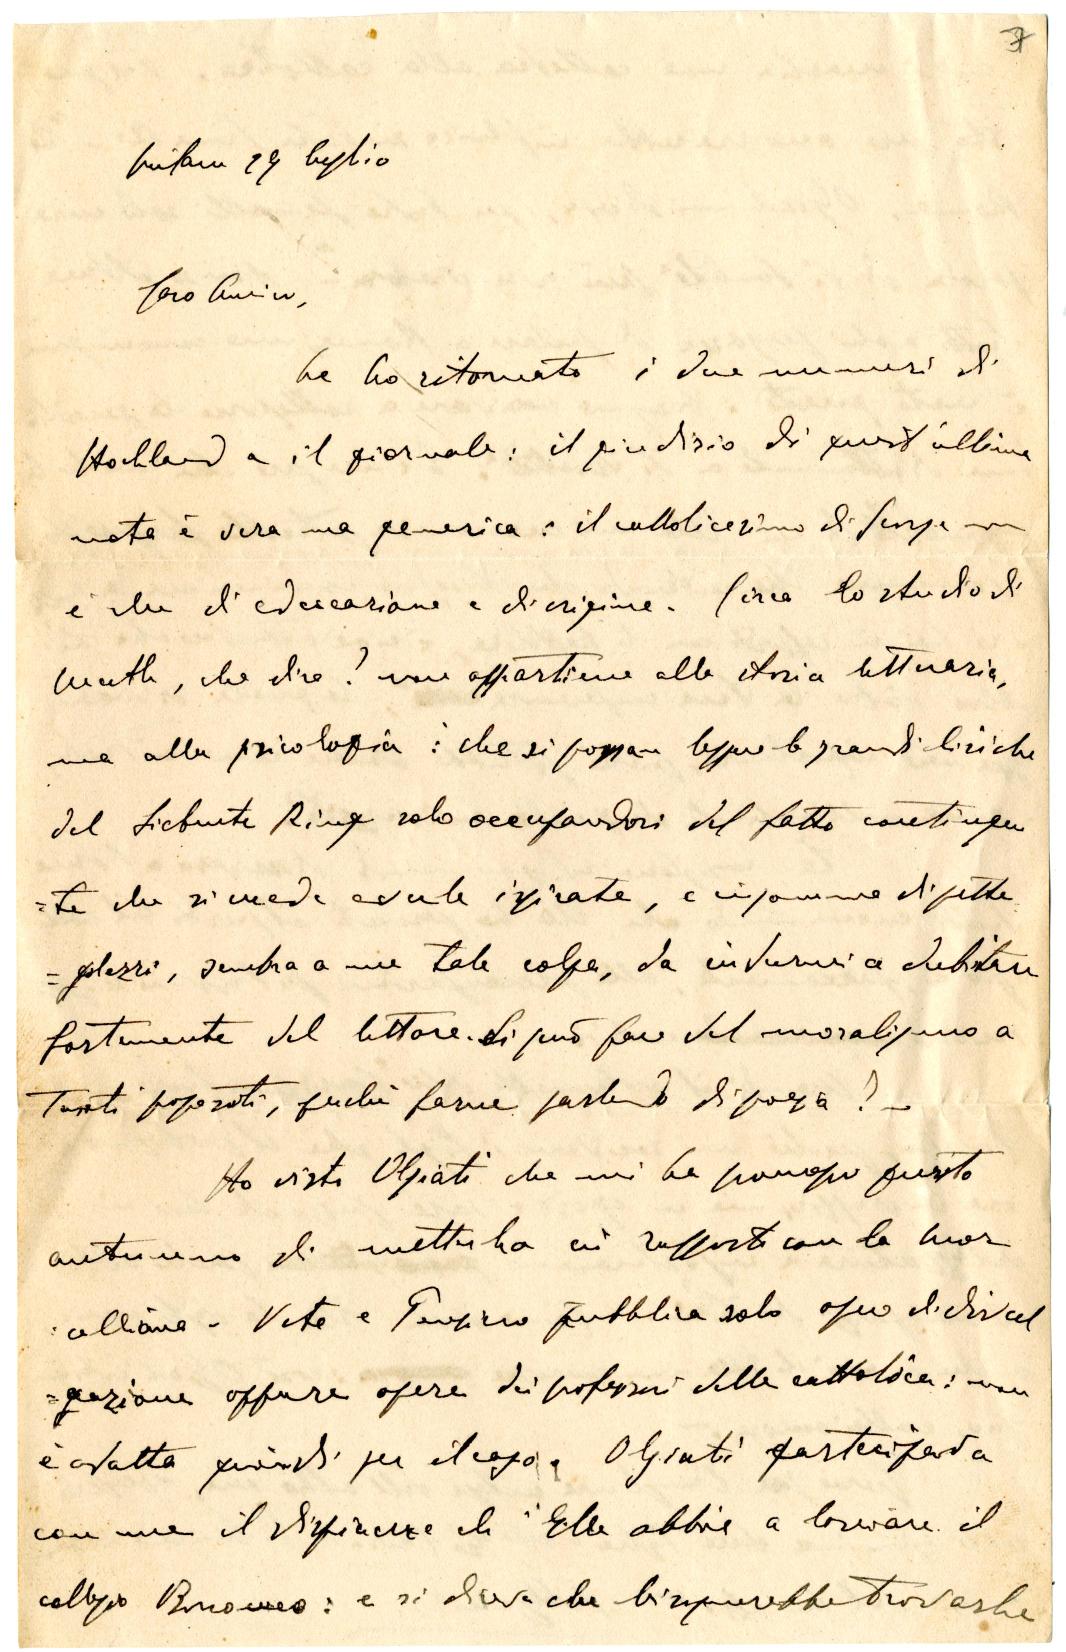 7
Milano 29 luglio
Caro Amico,
Le ho ritornato i due numeri di
Hochland e il giornale: il giudizio di quest'ultima
nota è vero ma generico: il cattolicesimo di George non
è che di educazione e di origine. Circa lo studio di
Muth, che dire? non appartiene alla storia letteraria,
ma alla psicologia: che si possan leggere le grandi liriche
del Siebente Ring solo occupandosi del fatto contingen
=te che si crede averle ispirate, e insomma di pette
=golezzi, sembra a me tale colpa, da indurmi a dubitare
fortemente del lettore. Si può fare del moralismo a
tanti propositi, perché farne parlando di poesia? –
Ho visto Olgiati che mi ha promesso questo
autunno di metterla in rapporti con la Mor
=celliana. Vita e Pensiero pubblica solo opere di divul
=gazione oppure opere dei professori della cattolica: non
è adatta quindi per il caso. Olgiati partecipava
con me il dispiacere che Ella abbia a lasciare il
collegio Borromeo: e si diceva che bisognerebbe trovarle